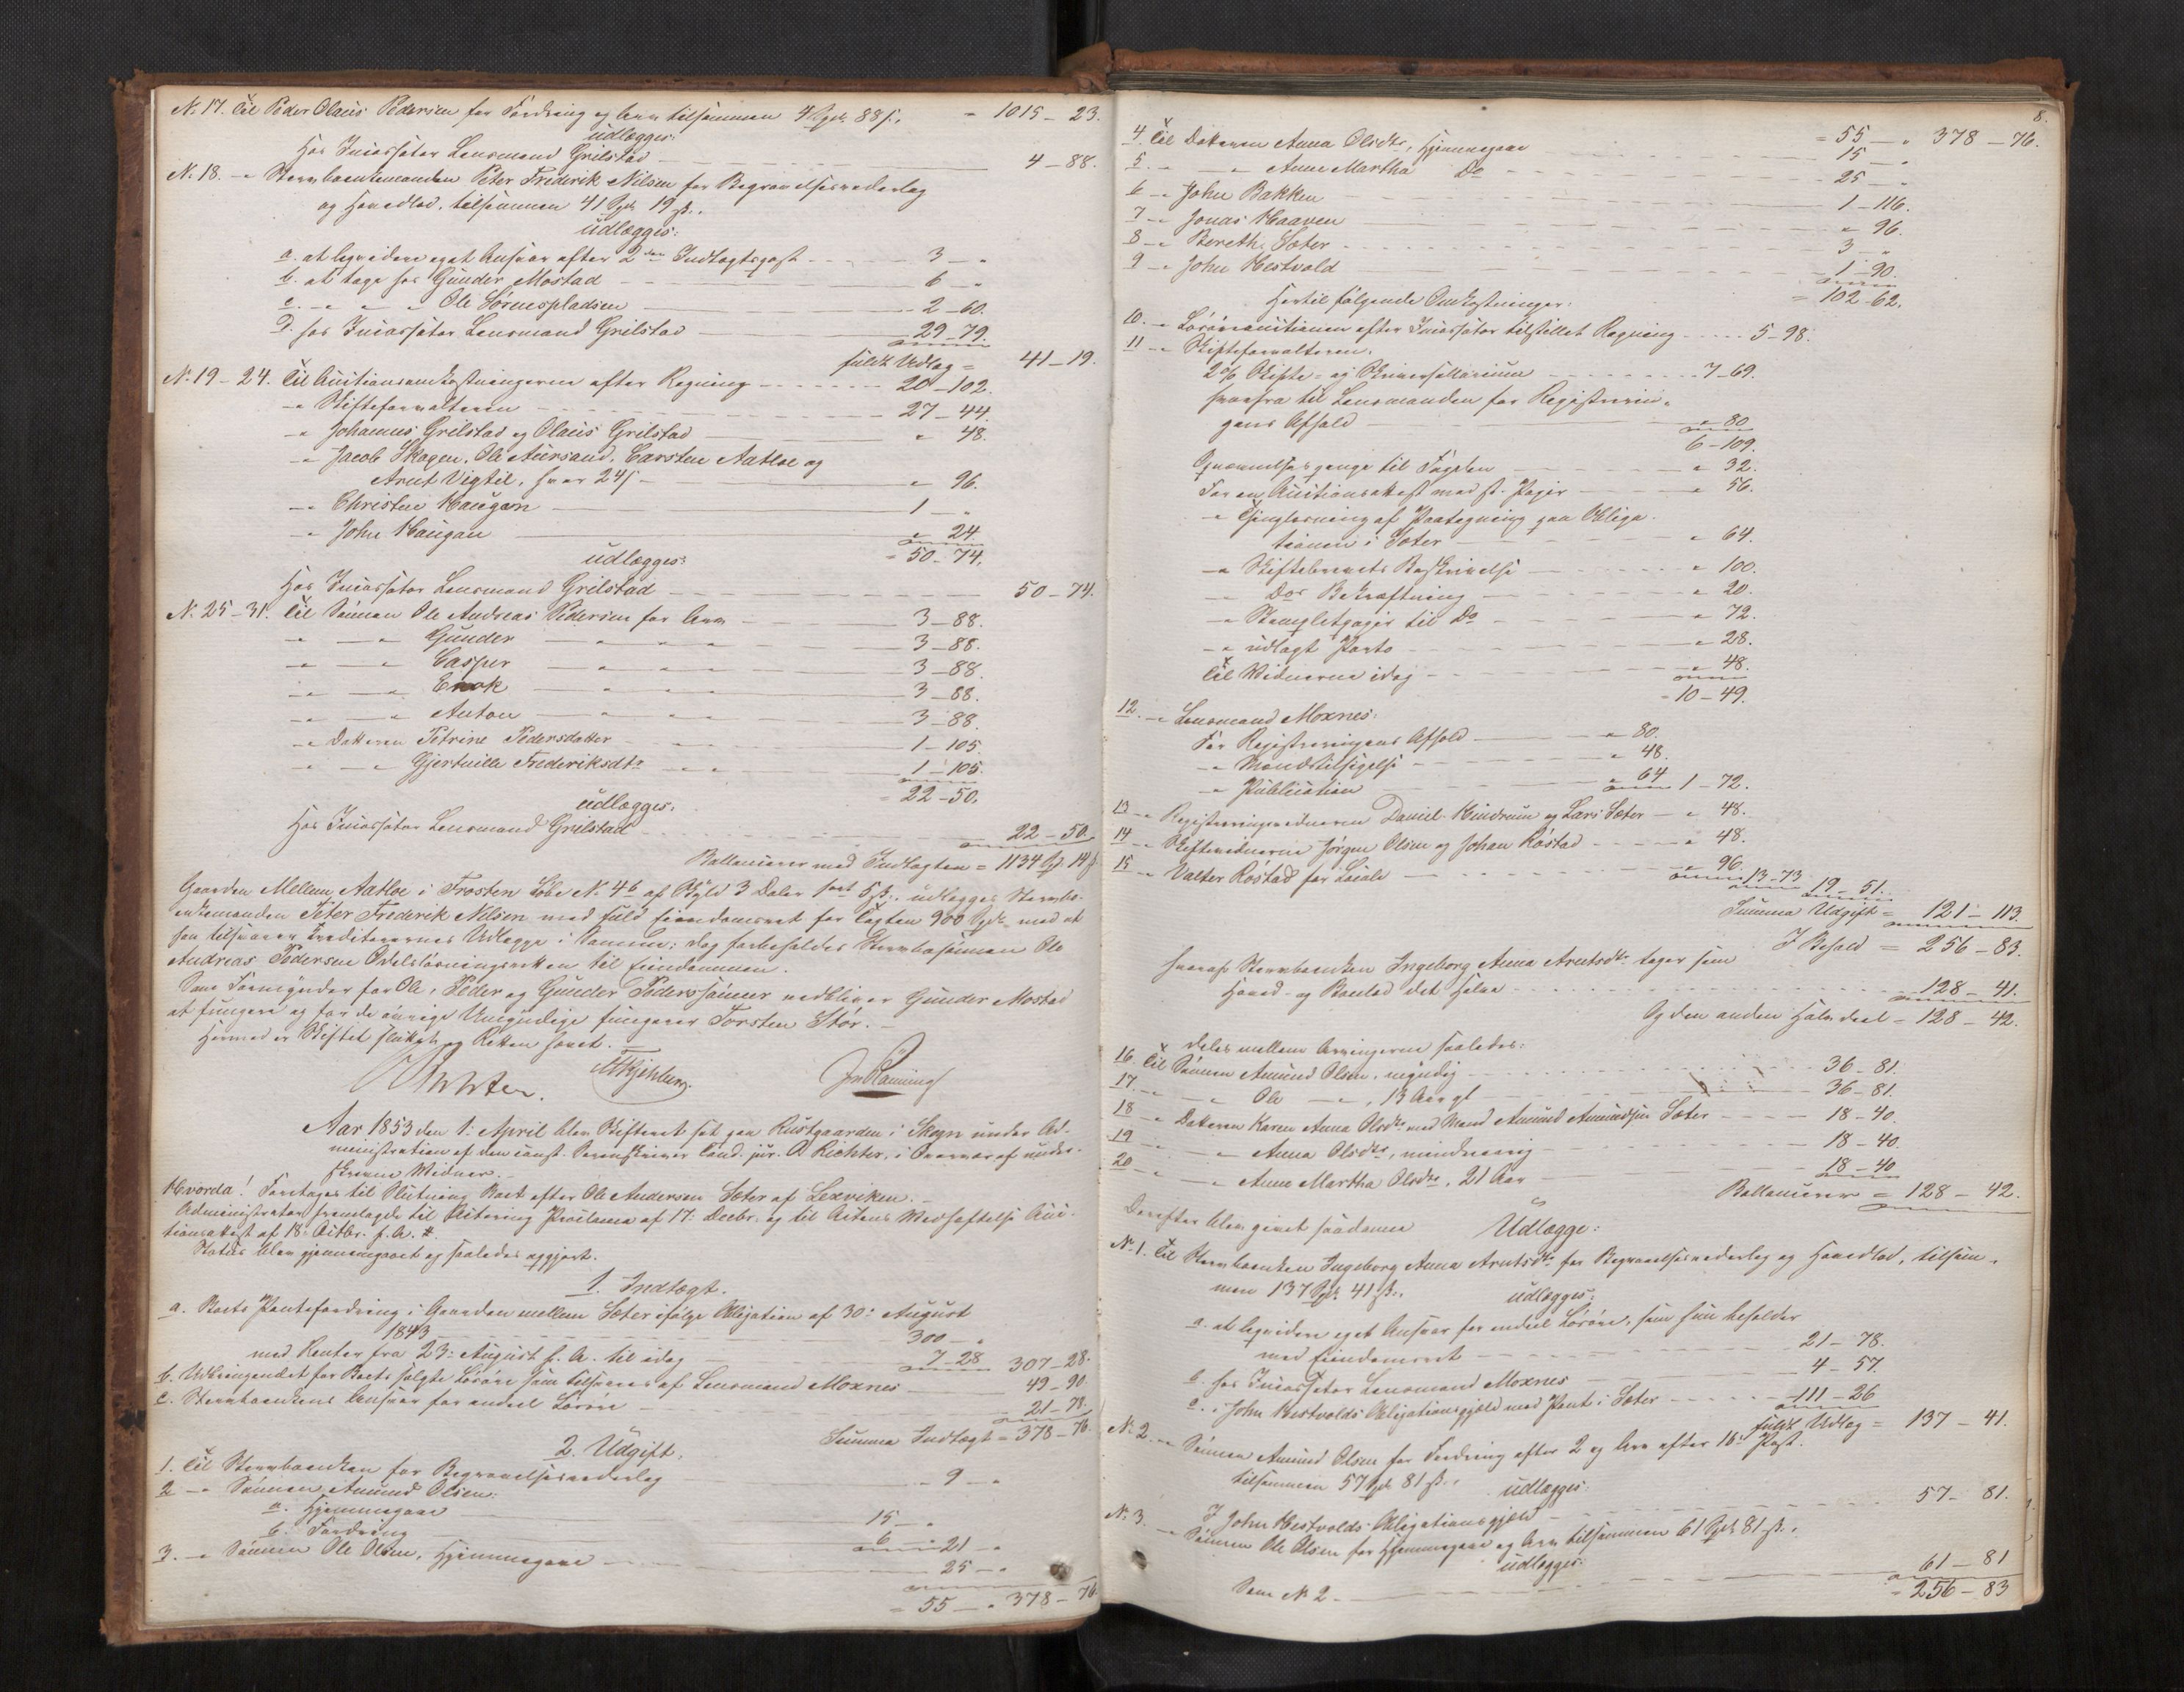 N. 17. Til Peder Olaus Pedersen for Fordring og Arv tilsammen 4 Spd. 88 s. = 1015 – 23.
udlægges:
Hos Incassator Lensmand Grilstad 4 – 88.
N. 18. – " Stervboenkemanden Peter Frederik Nilsen for Begravelsesvederlag
og Hovedlod, tilsammen 41 Spd. 19 s.,
udlægges:
a. at liqvidere eget Ansvar efter 2den Indtægtspost 3 – "
b. at tage hos Gunder Mostad 6 – "
c. – " " " Ole Sørnespladsen 2 – 60.
d. hos Incassator Lensmand Grilstad 29 – 79.
fuldt Udlæg = 41 – 19.
N. 19 – 24. Til Auctionsomkostningerne efter Regning 20 – 102.
– " Skifteforvalteren 27 – 44.
– " Johannes Grilstad og Olaus Grilstad " 48.
– " Jacob Skogen, Ole Aursand, Carsten Aatloe og
Arnt Vigtil, hver 24 s " 96.
– " Christen Haugan 1 – "
– " John Haugan " 24.
udlægges: = 50 – 74.
Hos Incassator Lensmand Grilstad 50 – 74.
N. 25 – 31. Til Sønnen Ole Andreas Pedersen for Arv 3 – 88.
– " – " Gunder – " " 3 – 88.
– " – " Casper – " " 3 – 88.
– " – " Enok – " " 3 – 88.
– " – " Anton – " " 3 – 88.
– " Datteren Petrine Pedersdatter 1 – 105.
– " – " Gjertville Frederiksdtr 1 – 105.
udlægges: = 22 – 50.
Hos Incassator Lensmand Grilstad 22 – 50.
Ballancerer med Indtægten = 1134 Spd. 14 s
Gaarden Mellem Aatloe i Frosten Løbe N. 46 af Skyld 3 Daler 5 s., udlægges Stervbo-
enkemanden Peter Frederik Nilsen med fuld Eiendomsret for Taxten 900 Spd. mod at
han tilsvarer Creditorernes Udlægge i Samme; dog forbeholdes Stervbosønnen Ole
Andreas Pedersen Odelsløsningsretten til Eiendommen.
Som Formynder for Ole, Peder og Gunder Pederssønner vedbliver Gunder Mostad
at fungere og for de øvrige Umyndige fungerer Torsten Stor.
Hermed er Skiftet sluttet og Retten hævet. –
Richter.
Aar 1853 den 1. April blev Skifteret sat paa Rustgaarden i Skogn under Ad-
ministration af den const. Sorenskriver Cand. jur. O. Richter, i Overvær af under-
skrevne Vidner. –
Hvorda! Foretages til Slutning Boet efter Ole Andersen Sæter af Lexviken. –
Administrator fremlagde til Acitering Proclama af 17. Decbr. og til Actens Vedhæftelse Auc-
tionsattest af 18. Octbr. f. A. #.
Status blev gjennemgaaet og saaledes opgjort.
1. Indtægt.
a. Boets Pantefordring i Gaarden mellem Sæter ifølge Obligation af 30. August
1843 300 – "
med Renter fra 23. August f. A. til idag 7 – 28 307 – 28.
b. Udbringendet for Boets solgte Løsøre som tilsvares af Lensmand Moxnes 49 – 90.
c. Stervboenkens Ansvar for endeel Løsøre 21 – 78.
Summa Indtægt = 378 – 76.
2. Udgift.
1. Til Stervboenken for Begravelsesvederlag 9 – "
2. – " Sønnen Amund Olsen:
a. Hjemmegave 15 – "
b. Fordring 6 – " 21 – "
3. – " Sønnen Ole Olsen, Hjemmegave 25 – "
= 55 – " 378 – 76.
8.
= 55 – " 378 – 76.
4. Til Datteren Anna Olsdtr, Hjemmegave 15 – "
5. – " – " Anne Martha Do 25 – "
6. – " John Bakken 1 – 116.
7. – " Jonas Haaven " 96.
8. – " Bereth Sæter 3 – "
9. – " John Hestvold 1 – 90.
= 102 – 62.
Hertil følgende Omkostninger:
10. – " Løsøreauctionen efter Incassator tilstillet Regning 5 – 98.
11. – " Skifteforvalteren:
2 % Skifte- og Skriversallarium 7 – 69.
herfra til Lensmanden for Registrerin-
gens Afhold " 80
6 – 109.
Oprømmelsespenge til Fogden " 32.
For en Auctionsattest med st. Papir " 56.
– " Thinglæsning af Paategning paa Obliga-
tionen i Sæter " 64.
– " Skiftebrevets Beskrivelse " 100.
– " Dos Bekræftning " 20.
– " Stempletpapir til Do " 72.
– " udlagt Porto " 28.
Til Vidnerne idag " 48.
= 10 – 49.
12. – " Lensmand Moxnes:
For Registreringens Afhold " 80.
– " Mandstilsigelse " 48.
– " Publication " 64 1 – 72.
13. – " Registreringsvidnerne Daniel Hindrum og Lars Sæter " 48.
14. – " Skiftevidnerne Jørgen Olsen og Johan Røstad " 48.
15. – " Valter Røstad for Locale " 96.
13 – 73 19 – 51.
Summa Udgift = 121 – 113.
I Behold = 256 – 83.
hvoraf Stervboenken Ingeborg Anna Arntsdtr tager som
Hoved- og Boeslod det Halve 128 – 41.
Og den anden Halvdeel = 128 – 42.
deles mellem Arvingerne saaledes:
16. Til Sønnen Amund Olsen, myndig 36 – 81.
17. – " – " Ole – " , 13 Aar gl. 36 – 81.
18. – " Datteren Karen Anna Olsdtr med Mand Amund Amundsen Sæter 18 – 40.
19. – " – " Anna Olsdtr, mindreaarig 18 – 40.
20. – " – " Anne Martha Olsdtr, 21 Aar 18 – 40
Ballancerer = 128 – 42.
Derefter blev givet saadanne Udlægge:
N. 1. Til Stervboenken Ingeborg Anna Arntsdtr for Begravelsesvederlag og Hovedlod, tilsam-
men 137 Spd. 41 s., udlægges:
a. at liqvidere eget Ansvar for endeel Løsøre, som hun beholder
med Eiendomsret 21 – 78.
b. hos Incassator Lensmand Moxnes 4 – 57.
c. i John Hestvolds Obligationsgjæld med Pant i Sæter 111 – 26
fuldt Udlæg = 137 – 41.
N. 2. – " Sønnen Amund Olsen for Fordring efter 2 og Arv efter 16. Post.
tilsammen 57 Spd. 81 s., udlægges:
I John Hestvolds Obligationsgjæld 57 – 81.
N. 3. – " Sønnen Ole Olsen for Hjemmegave og Arv tilsammen 61 Spd. 81 s.,
udlægges:
Som N. 2. 61 – 81
= 256 – 83